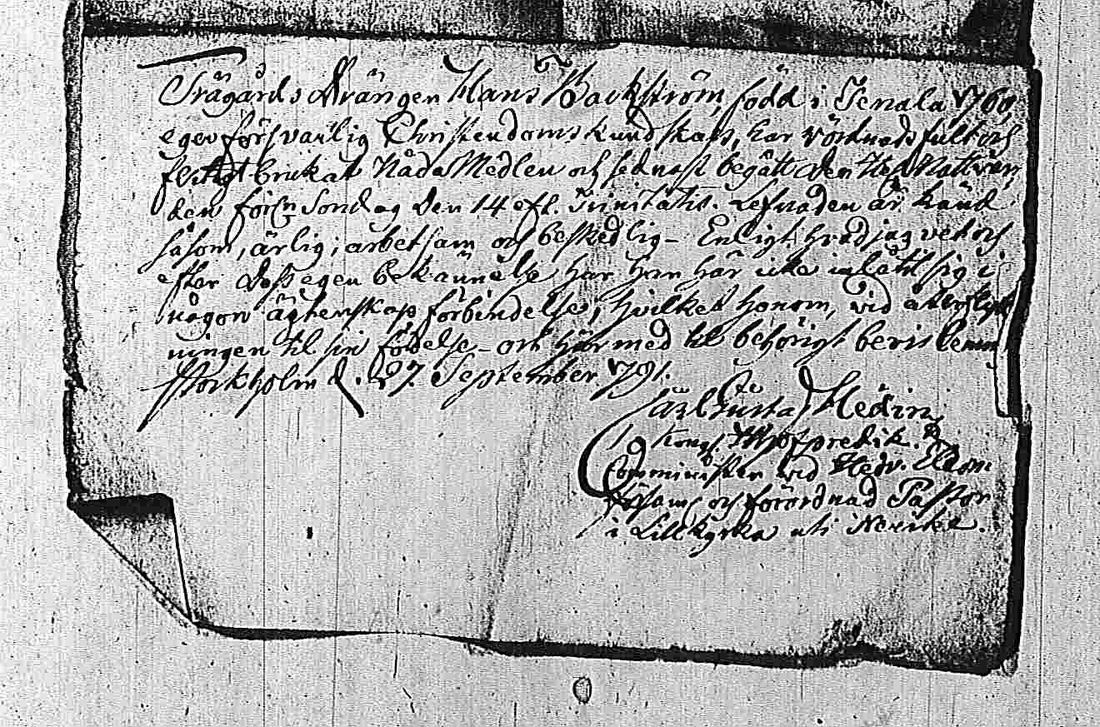 Trägårds Drängen Hans Backström, född i Tenala 1760,
eger försvarlig Christendoms kundskap, har vördnadsfult och
flitigt brukat Nåda Medlen och sednast begått den H. Nattvard
den förs. Söndag den 14 eft. Trinitatis. Lefnaden är känd
såsom, ärlig, arbetsam och beskedlig - Enligt hvad jag vet och
efter dess egen bekännelse har han här icke inlåtit sig i
någon ägtenskaps förbindelse, hvilket honom, vid
ningen til sin födelse- ort härmed til behörigt bevis lemnas
Stockholm d. 27. September 1791.
Carl Gustaf Hedin
Kongl. Hofpredik. &
Comminister vid Hedv. Eleon.
förs. och förordnad Pastor
i Lillkyrka uti Nerike.